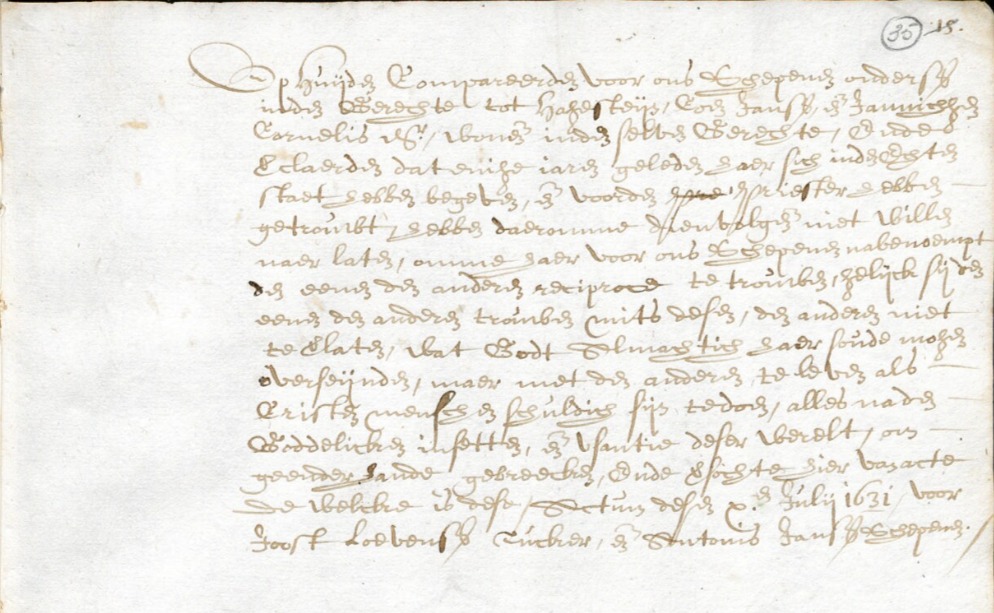 35 18.
Op Huijden Compareerden voor ons Schepenen onderss
inden Gerechte tot Hagesteijn, Coen Janss, en Jannichgen
Cornelis dr, wonen inden selven Gerechte, Ende
Claerden dat enige iaren geleden haer sich inden Echten
staet hebben begeven, en voorden priester hebben
getroubt, hebben daeromme niet willen
naer laten, omme haer voor ons Schepenen nabenoempt
den eenen den anderen reciproce te trouwen, gelijck sij den
eenen den anderen trouwen mits desen, den anderen niet
te Claten, wat Godt Almachtich haer soude mogen
overseijnden, maer met den anderen te leven als
Cristen menschen schuldich sijn te doen, alles naden
Goddelicken insetten, en Usantie deser werelt, om
geenderhande gebreecken, Ende Sochte hier van acte
de welcke is dese, Actum desen x.en Julij 1631, voor
Joost Loevenss Tucker, en Antonis Janss Schepenen.